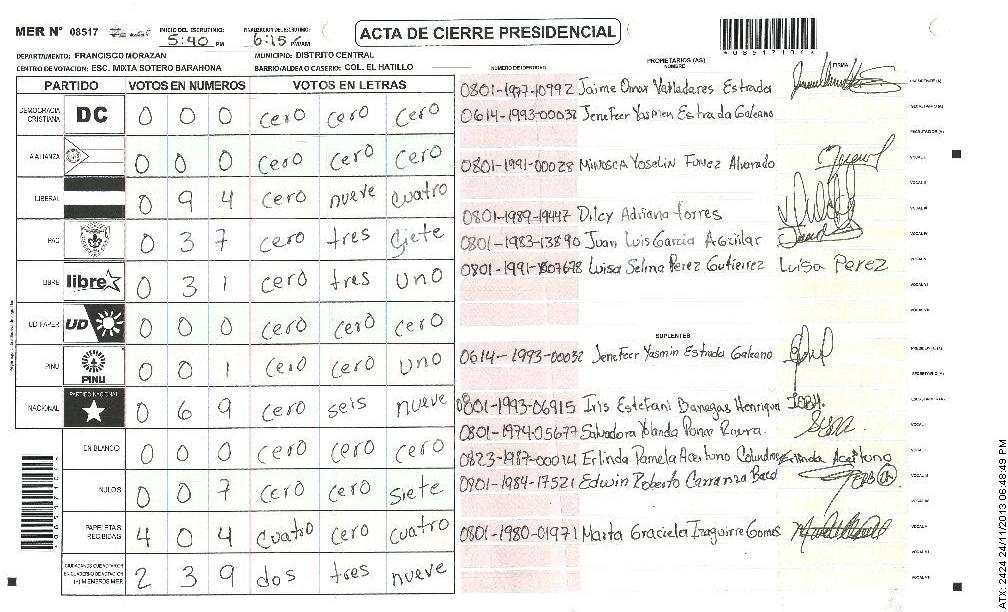 MER N° 08517 INICIO DEL ESCRUTINIO: 5:40 PM FINALIZACION DEL ESCRUTINIO: 6:15 PM/AM
ACTA DE CIERRE PRESIDENCIAL
DEPARTAMENTO: FRANCISCO MORAZAN MUNICIPIO: DISTRITO CENTRAL
CENTRO DE VOTACION: ESC. MIXTA SOTERO BARAHONA BARRIO/ALDEA O CASERIO: COL. EL HATILLO
PARTIDO VOTOS EN NUMEROS VOTOS EN LETRAS
DEMOCRACIA CRISTIANA DC 0 0 0 cero cero cero
ALIANZA 0 0 0 cero cero cero
LIBERAL 0 9 4 cero nueve cuatro
PAC 0 3 7 cero tres siete
LIBRE libre 0 3 1 cero tres uno
UD/FAPER UD 0 0 0 cero cero cero
PINU PINU 0 0 1 cero cero uno
NACIONAL PARTIDO NACIONAL 0 6 9 cero seis nueve
EN BLANCO 0 0 0 cero cero cero
NULOS 0 0 7 cero cero siete
PAPELETAS RECIBIDAS 4 0 4 cuatro cero cuatro
2 3 9 dos tres nueve
NUMERO DE IDENTIDAD PROPIETARIOS (AS) NOMBRE FIRMA
0801-1997-10992 Jaime Omar Valladares Estrada
0614-1993-00032 Jenefeer Yasmien Estrada Galeano
0801-1991-00028 Minosca Yoselin Funez Alvarado
0801-1989-19447 Dilcy Adriana torres
0801-1983-13890 Juan Luis Garcia Aguilar
0801-1991-07678 Luisa Selina Perez Gutierrez Luisa Perez
SUPLENTES
0614-1993-00032 Jenefeer Yasmin Estrada Galeano
0801-1993-06915 Iris Estefani Banegas Henriquez
0801-1974-05677 Salvadora Yolanda Ponar Rivera
0823-1987-00014 Erlinda Pamela Aceituno Erlinda Aceituno
0801-1984-17521 Edwin Roberto Carranza Baca
0801-1980-01971 Marta Graciela Izaguirre Gomes
ATX: 2424 24/11/2013 06:48:49 PM